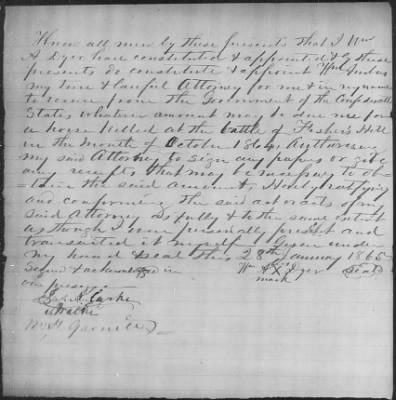 Know all men by these presents that I Wm
A Dyer have constituted & appointed & by these
presents do constitute & appoint Wm
my true & lawful Attorney for me & in my name
to receive from the Government of the Confederate
States whatever amount may be due me for
a horse killed at the battle of Fishers Hill
in the month of October 1864, Authorising
my said Attorney to sign any papers or give
any receipts that may be necessary to ob-
-tain the said amount, Hereby ratifying
and confirming the said act or acts of my
said Attorney as fully & to the same extent
as though I were personally present and
transacted it myself. Given under
my hand & seal this 28th January 1865
Signed & acknowledged in Wm A his X Dyer Seal
our presence mark
Clarke
Wm H Garnett